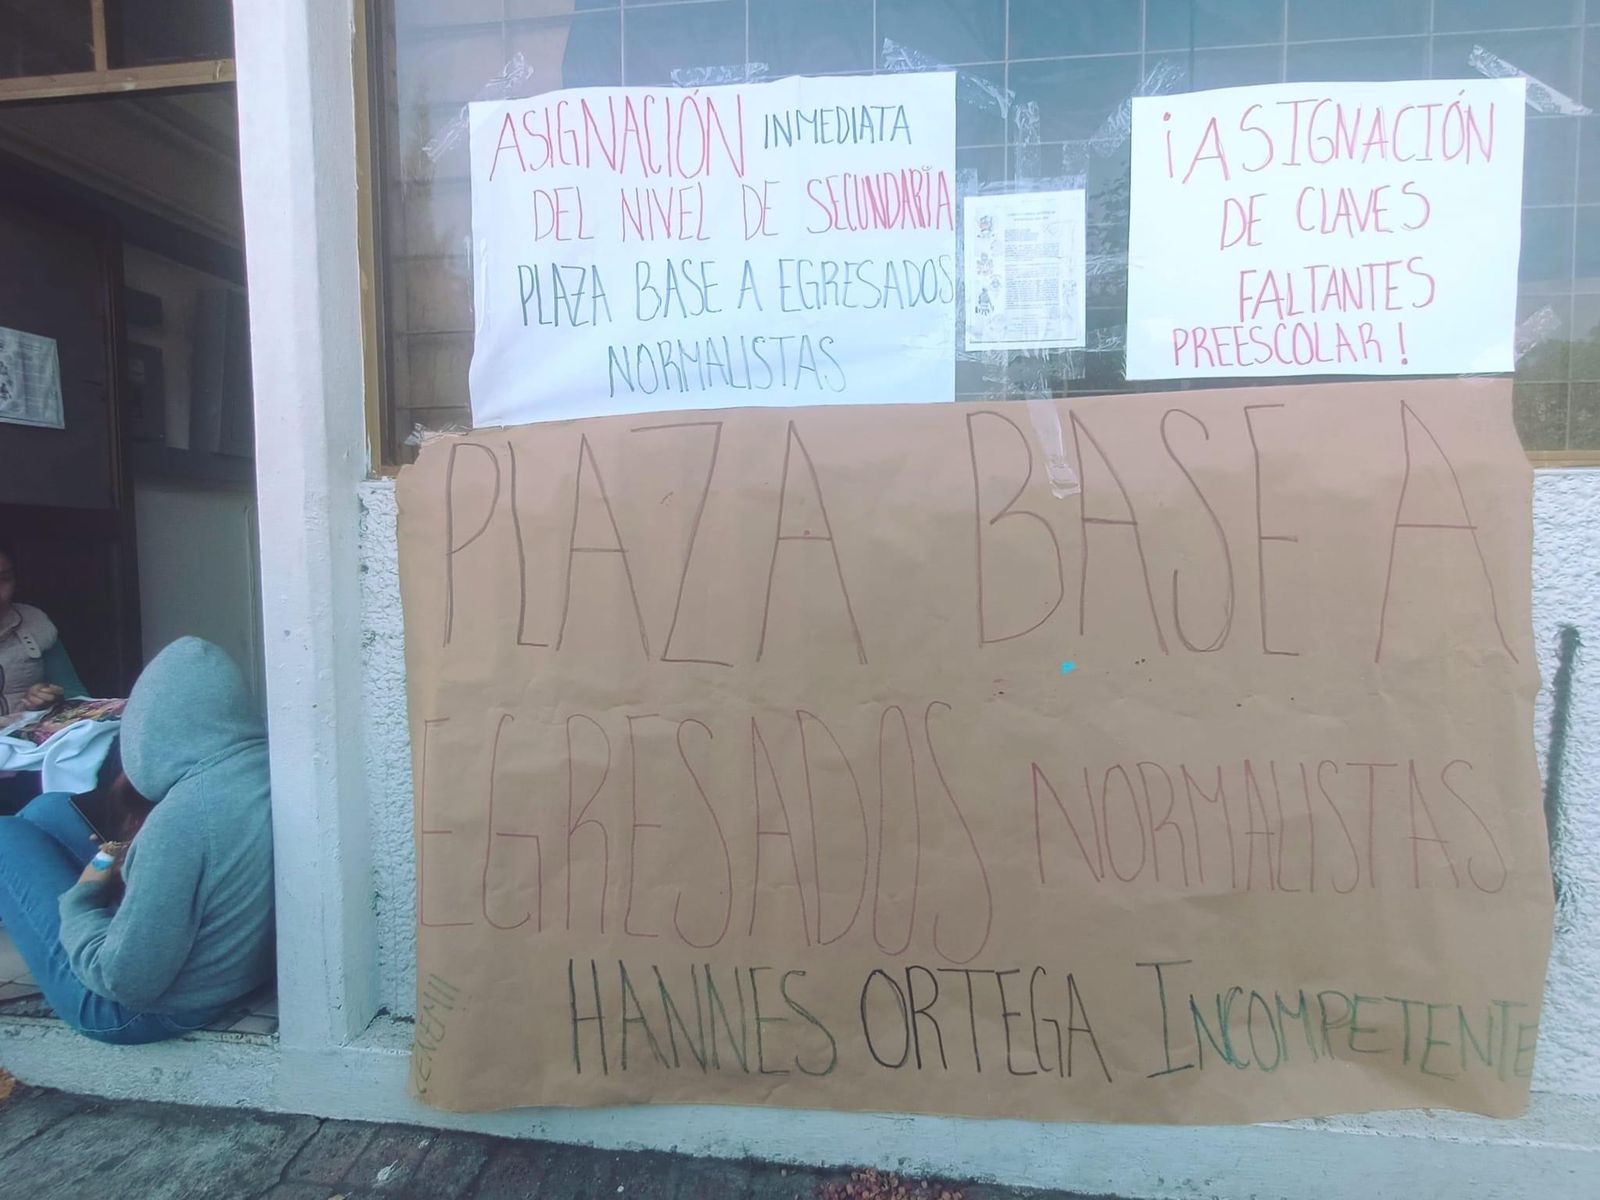 ASIGNACIÓN INMEDIATA
DEL NIVEL DE SECUNDARIA
PLAZA BASE A EGRESADOS
NORMALISTAS
¡ASIGNACIÓN
DE CLAVES
FALTANTES
PREESCOLAR!
PLAZA BASE A
EGRESADOS NORMALISTAS
HANNES ORTEGA INCOMPETENTE